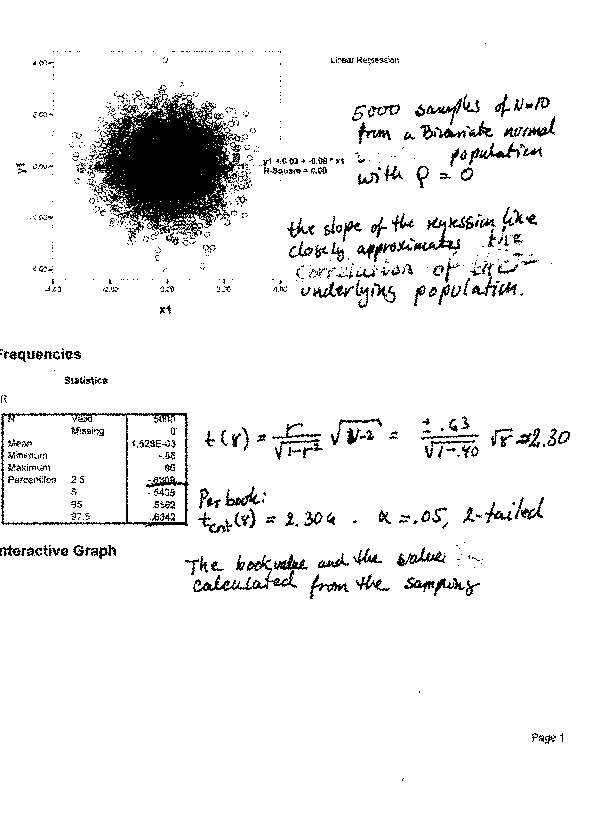 Linear Regression
4.00
2.00
0.00
y1
x1
R-Square = 0.00
5000 samples of N=10
from a Bivariate normal
population
with ρ = 0
the slope of the regression line
closely approximates the
correlation of the
underlying population.
Frequencies
Statistics
R
N Valid 5000
Missing 0
Mean 1.529E-03
Minimum
Maximum
Percentiles 2.5 -.6309
5 -.5435
95 .5562
97.5 .6342
t(8) = r/√1-r² √N-2 = ± .63/√1-.40 √8 = 2.30
Per book:
t crit (8) = 2.306 . α = .05, 2-tailed
Interactive Graph
The book value and the value
calculated from the sampling
Page 1